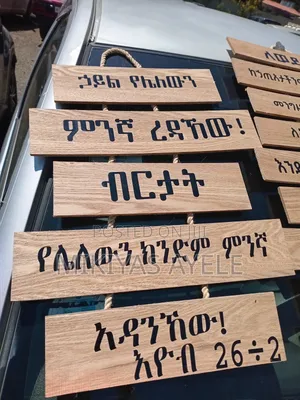 ኃይል የሌለውን
ምንኛ ረዳኸው!
ብርታት
POSTED ON JIJI
የሌለውን ክንድም ምንኛ
MIKIYAS AYELE
አዳንኸው!
እዮብ 26÷2
ለወደ